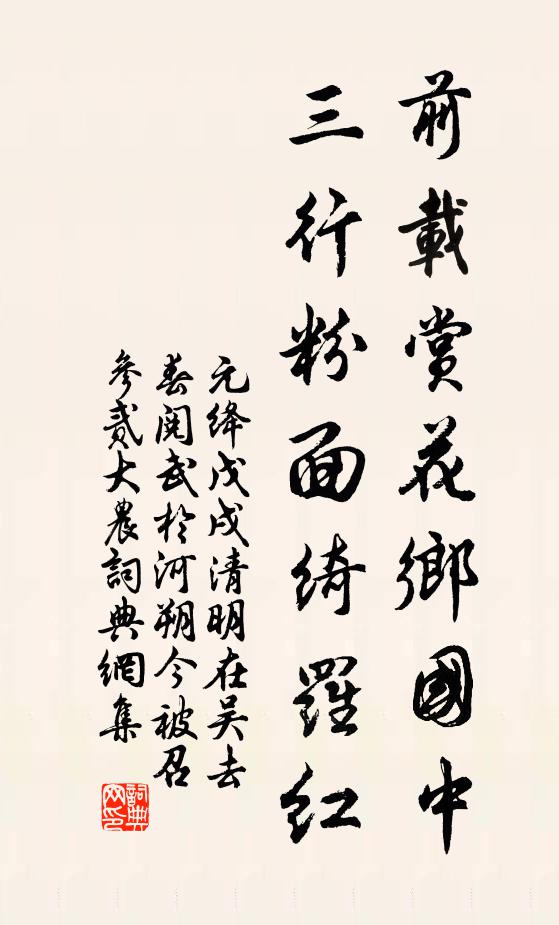 前載賞花鄉國中
三行粉面綺羅紅
元絳戊戌清明在吴去
春閱武於河朔今被召
參貳大農詞典網集
詞典网印